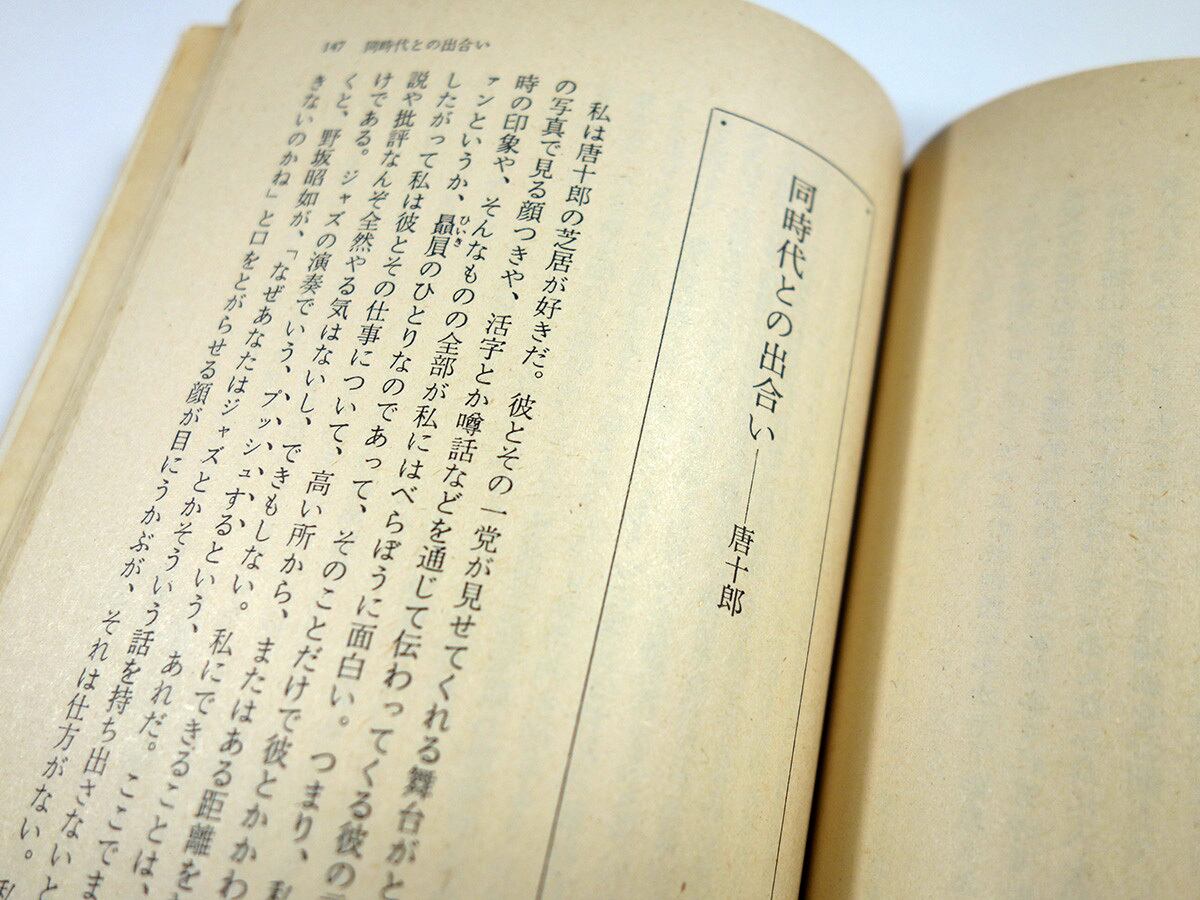 147　同時代との出合い
同時代との出合い――唐十郎
私は唐十郎の芝居が好きだ。彼とその一党が見せてくれる舞台がと
の写真で見る顔つきや、活字とか噂話などを通じて伝わってくる彼の
時の印象や、そんなものの全部が私にはべらぼうに面白い。つまり、私
ァンというか、贔屓のひとりなのであって、そのことだけで彼とかかわ
したがって私は彼とその仕事について、高い所から、またはある距離を
説や批評なんぞ全然やる気はないし、できもしない。私にできることは、
けである。ジャズの演奏でいう、プッシュするという、あれだ。ここでま
くと、野坂昭如が、「なぜあなたはジャズとかそういう話を持ち出さないと
きないのかね」と口をとがらせる顔が目にうかぶが、それは仕方がない。私